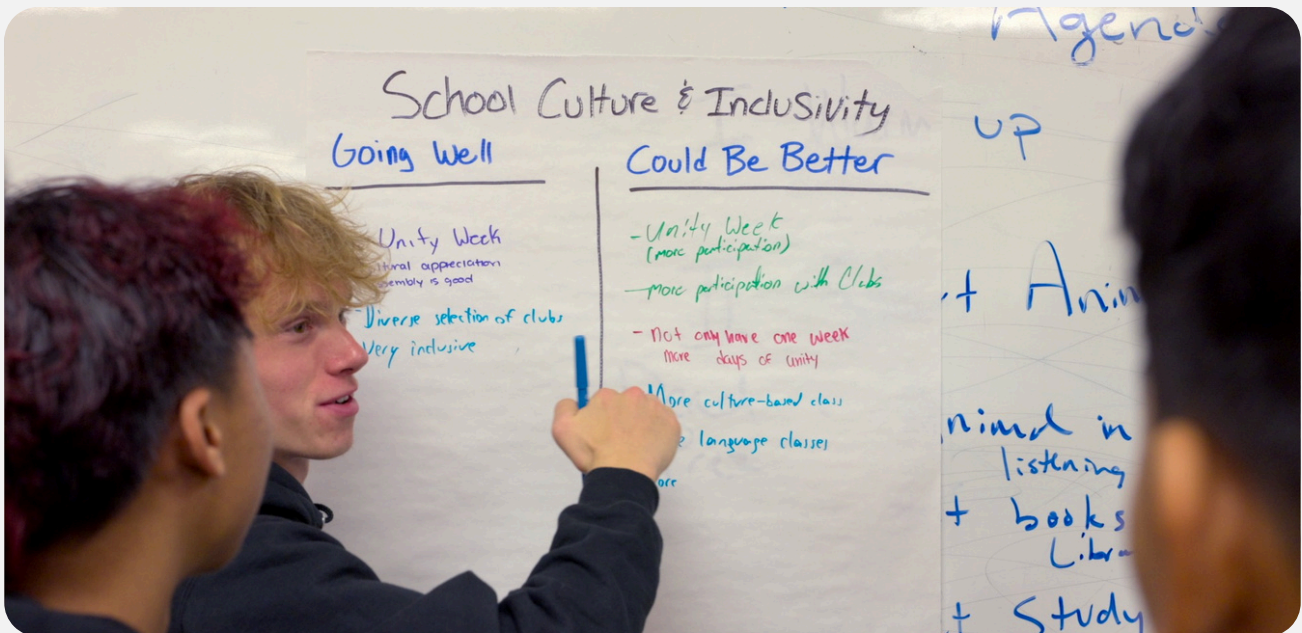 School Culture & Inclusivity
Going Well
Unity Week
appreciation
is good
Diverse selection of clubs
Very inclusive
Could Be Better
- Unity Week
(more participation)
- more participation with Clubs
- Not only have one week
more days of unity
More culture-based class
language classes
Agenda
up
in
listening
books
Study